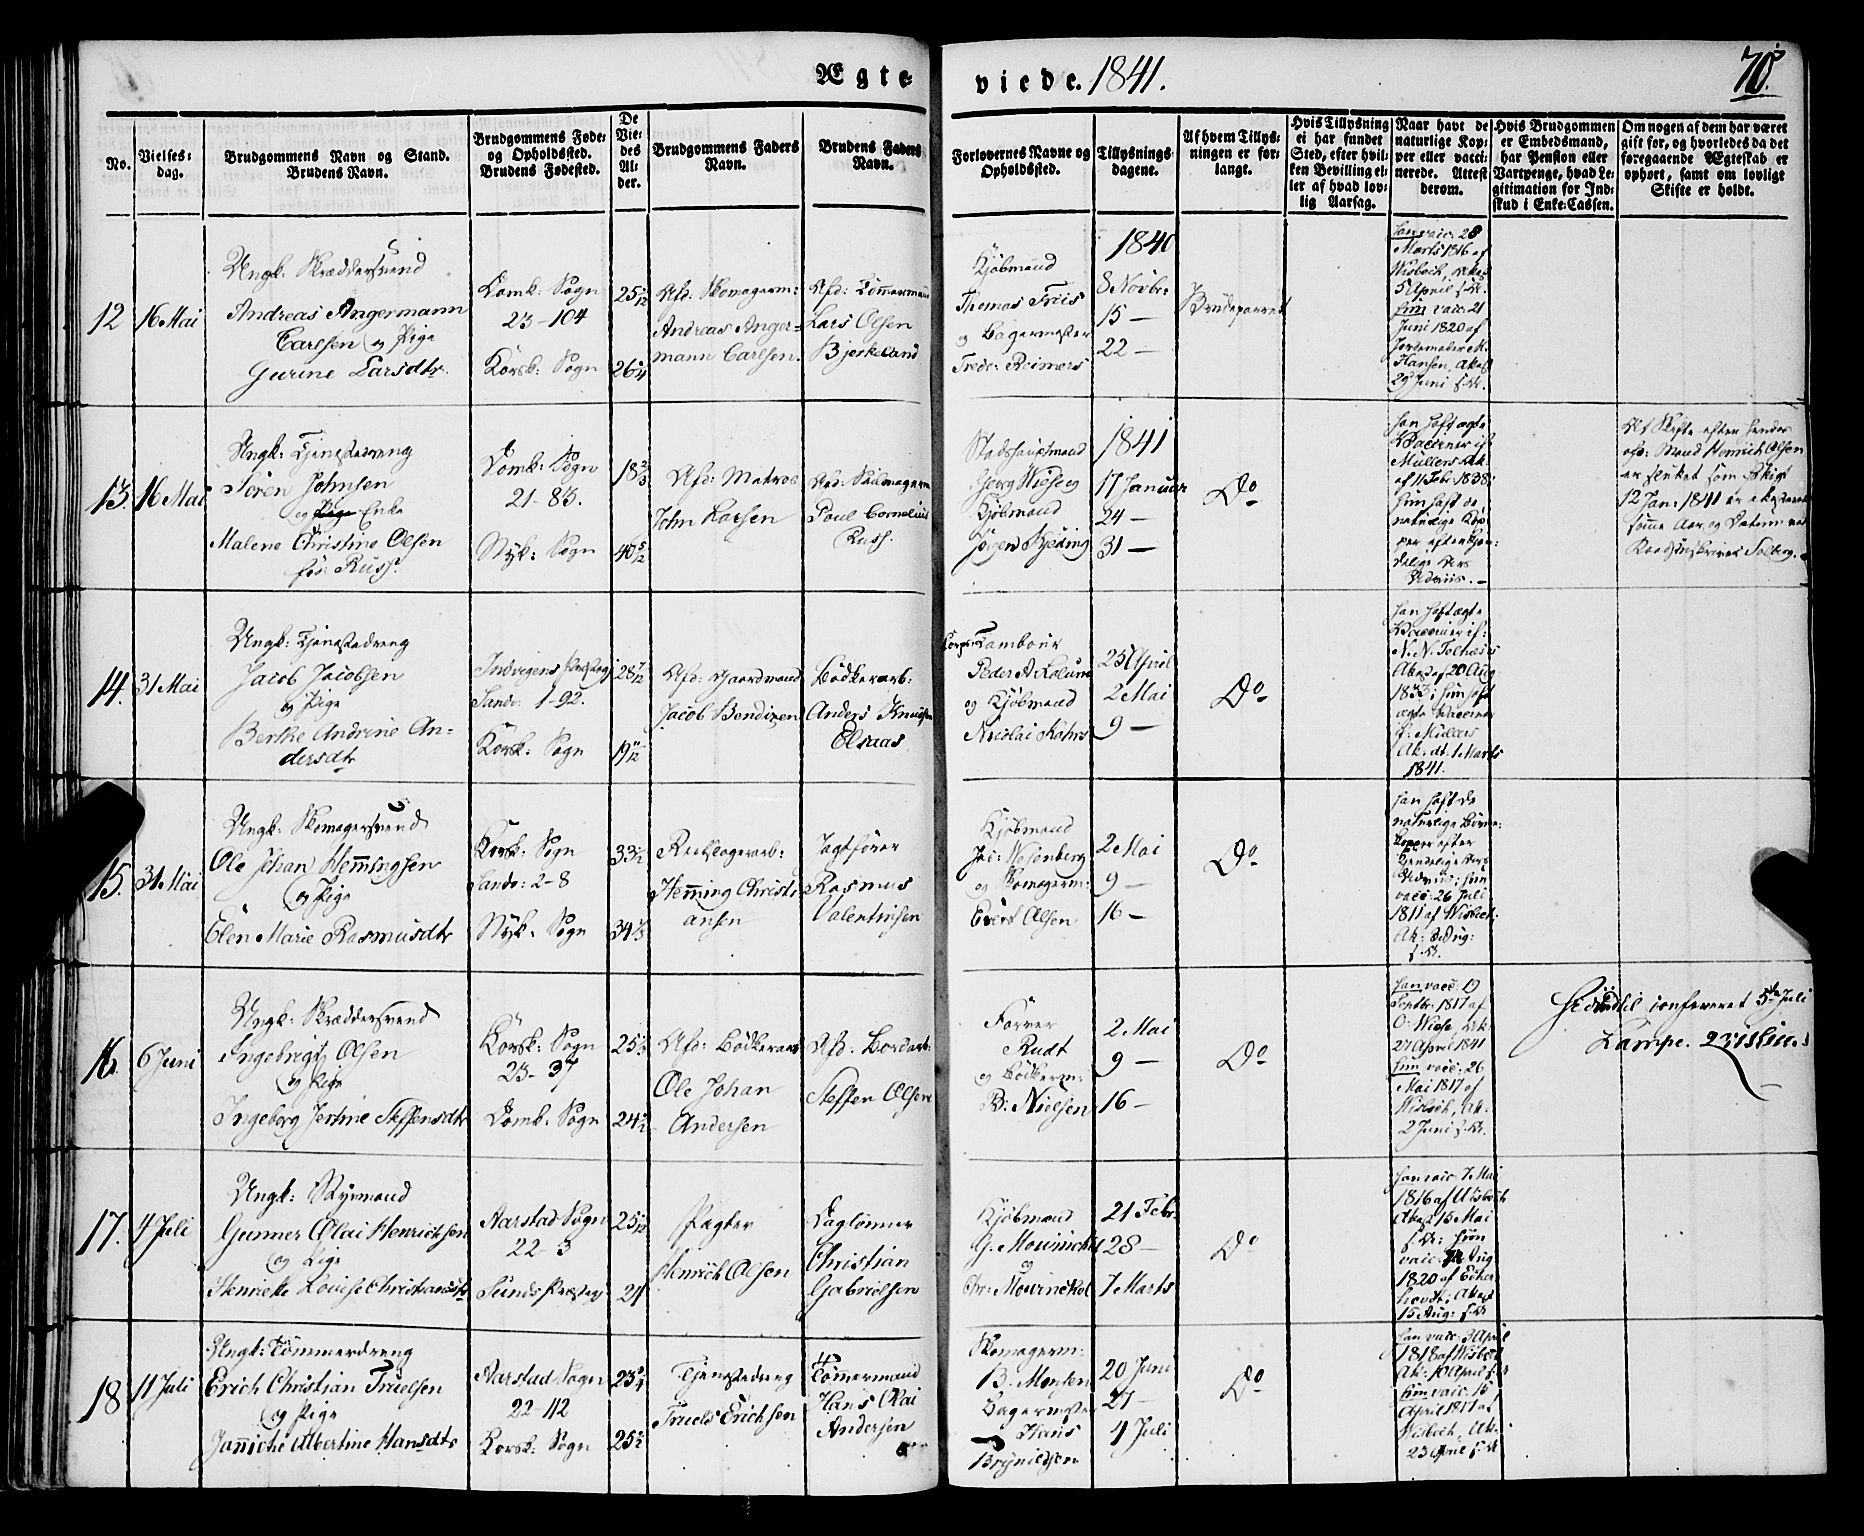 Ægteviede. 1841.
70.
No.
Vielses-
dag.
Brudgommens Navn og Stand.
Brudens Navn.
Brudgommens Føde-
og Opholdssted.
Brudens Fødested.
De
Vie-
des
Al-
der.
Brudgommens Faders
Navn.
Brudens Faders
Navn.
Forlovernes Navne og
Opholdssted.
Tillysnings-
dagene.
Af hvem Tillys-
ningen er for-
langt.
Hvis Tillysning
ei har fundet
Sted, efter hvil-
ken Bevilling el-
ler af hvad lov-
lig Aarsag.
Naar havt de
naturlige Kop-
per eller vacci-
nerede. Attest
derom.
Hvis Brudgommen
er Embedsmand,
har Pension eller
Vartpenge, hvad Le-
gitimation for Ind-
skud i Enke-Cassen.
Om nogen af dem har været
gift før, og hvorledes da det
foregaaende Ægteskab er
ophørt, samt om lovligt
Skifte er holdt.
12
16 Mai
Ungk: Skræddersvend
Andreas Angermann
Carlsen og Pige
Gurine Larsdtr.
Domk: Sogn
23-104
Korsk: Sogn
25
26
Afd: Skomagerm:
Andreas Anger-
mann Carlsen.
Afd: Tømmermand
Lars Olsen
Bjerkeland
Kjøbmand
Thomas Friis
og Bagermester
Fredr: Reimers
1840
8 Novbr
15 —
22 —
Brudeparret
Han vacc: 28
Marts 1816 af
Wisbech, Ak:
5 April s. A.
hun vacc: 21
Juni 1820 af
Jordemoder M.
Hansen, Ak:
29 Juni s. A.
13.
16 Mai
Ungk: Tjenestedreng
Søren Johnsen
og Pige Enke
Malene Christine Olsen
fød Russ.
Domk: Sogn
21-83.
Nyk: Sogn
18 2/3
40 5/12
Afd: Matros
John Larsen
Afd: Seilmagerm
Poul Cornelius
Russ.
Stadshauptmand
Georg Wiese og
Kjøbmand
Jørgen Kjeding
1841
17 Januar
24 —
31 —
Do
han haft ægte
Vaccener if:
Müllers Ak:
af 11 Febr 1838;
hun haft de
naturlige Kop-
per
At Skifte efter hendes
afd: Mand Henrich Olsen
er sluttet som
12 Jan: 1841
samme Aar og Datum ved
Raadstueskriver Solberg.
14.
31 Mai
Ungk: Tjenestedreng
Jacob Jacobsen
og Pige
Berthe Andrine An-
dersdtr
Indvigens Præstegj
Sandv: 1-92.
Korsk: Sogn
28 7/12
19 11/12
Afd: Gaardmand
Jacob Bendixen
Bødkerarb:
Anders Knudsen
Elsaas
Corps Tambour
Peder A Kolund
og Kjøbmand
Nicolai Rohrs
25 April
2 Mai
9 —
Do
han haft ægte
Vaccener if:
Ak: af 20 Aug:
1833; hun haft
ægte Vaccener
if: Müllers
Ak: dt: 1 Marts
1841.
15.
31 Mai
Ungk: Skomagersvend
Ole Johan Hemingsen
og Pige
Elen Marie Rasmusdtr
Korsk: Sogn
Sandv: 2-8
Nyk: Sogn
33
34 1/3
Reebslagerarb:
Hemming Christi-
ansen
Jagtfører
Rasmus
Valentinsen
Kjøbmand
Jac: Wesenberg
og Skomagerm:
Evert Olsen
2 Mai
9 —
16 —
Do
han haft de
naturlige Børne-
koper efter
hun
vacc: 26 Juli
1811 af Wisbech
Ak: Aug:
s. A.
16.
6 Juni
Ungk: Skræddersvend
Ingebrigt Olsen
og Pige
Ingeborg Jertine Steffensdtr
Korsk: Sogn
23-37
Domk: Sogn
25
24
Afd: Bødkerarb
Ole Johan
Andersen
Afd: Bordarb:
Steffen Olsen
Farver
Rudt
og Bødkerm:
B: Nielsen
2 Mai
9 —
16 —
Do
han vacc: 19
Septbr: 1817 af
O: Wiese, Ak:
27 April 1841
hun vacc: 26
Mai 1817 af
Wisbech, Ak:
2 Juni s. A.
Hidindtil confereret 5te Juli
Lampe.
17.
4 Juli
Ungk: Styrmand
Gunner Olai Henrichsen
og Pige
Henriette Louise Christiansdtr
Aarstad Sogn
22-3
Sunds Præstegj
25
21
Pagter
Henrich Olsen
Daglønner
Christian
Gabrielsen
Kjøbmand
G. Mowinckel
og
Chr: Mowinckel
21 Febr
28 —
7 Marts
Do
han vacc: 7 Mai
1816 af Wisbech
Ak: 15 Mai
s. A: hun
vacc: Aug
1820 af
Ak:
15 Aug: s. A
18
11 Juli
Ungk: Tømmerdreng
Erich Christian Truelsen
og Pige
Janniche Albertine Hansdtr
Aarstad Sogn
22-112
Korsk: Sogn
23
25
Tjenestedreng
Truels Erichsen
Tømmermand
Hans Olai
Andersen
Skomagerm:
B. Monsen
Bagermester
Hans
Brynildsen
20 Juni
27 —
4 Juli
Do
han vacc: 3 April
1818 af Wisbech
Ak: 10 April s. A
hun vacc: 15
April 1817 af
Wisbech, Ak:
23 April s. A